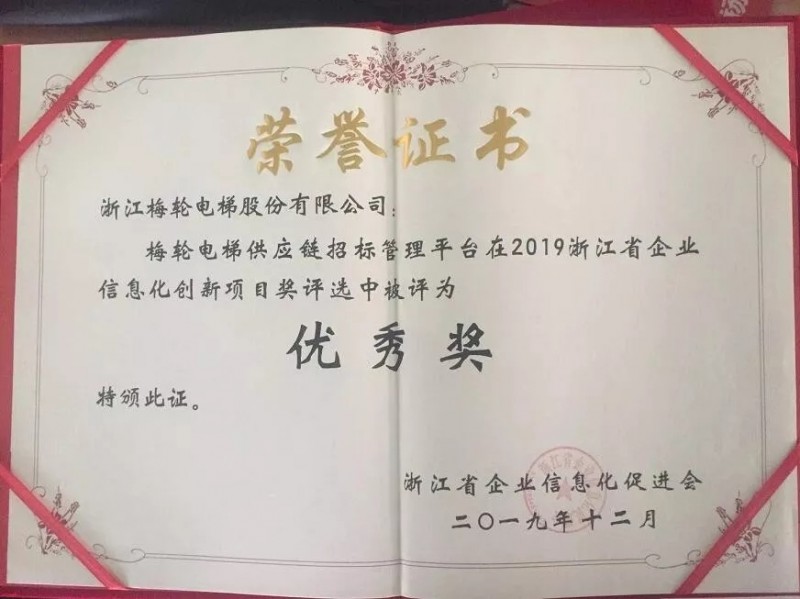 荣誉证书
浙江梅轮电梯股份有限公司：
梅轮电梯供应链招标管理平台在2019浙江省企业
信息化创新项目奖评选中被评为
优秀奖
特颁此证。
浙江省企业信息化促进会
二〇一九年十二月